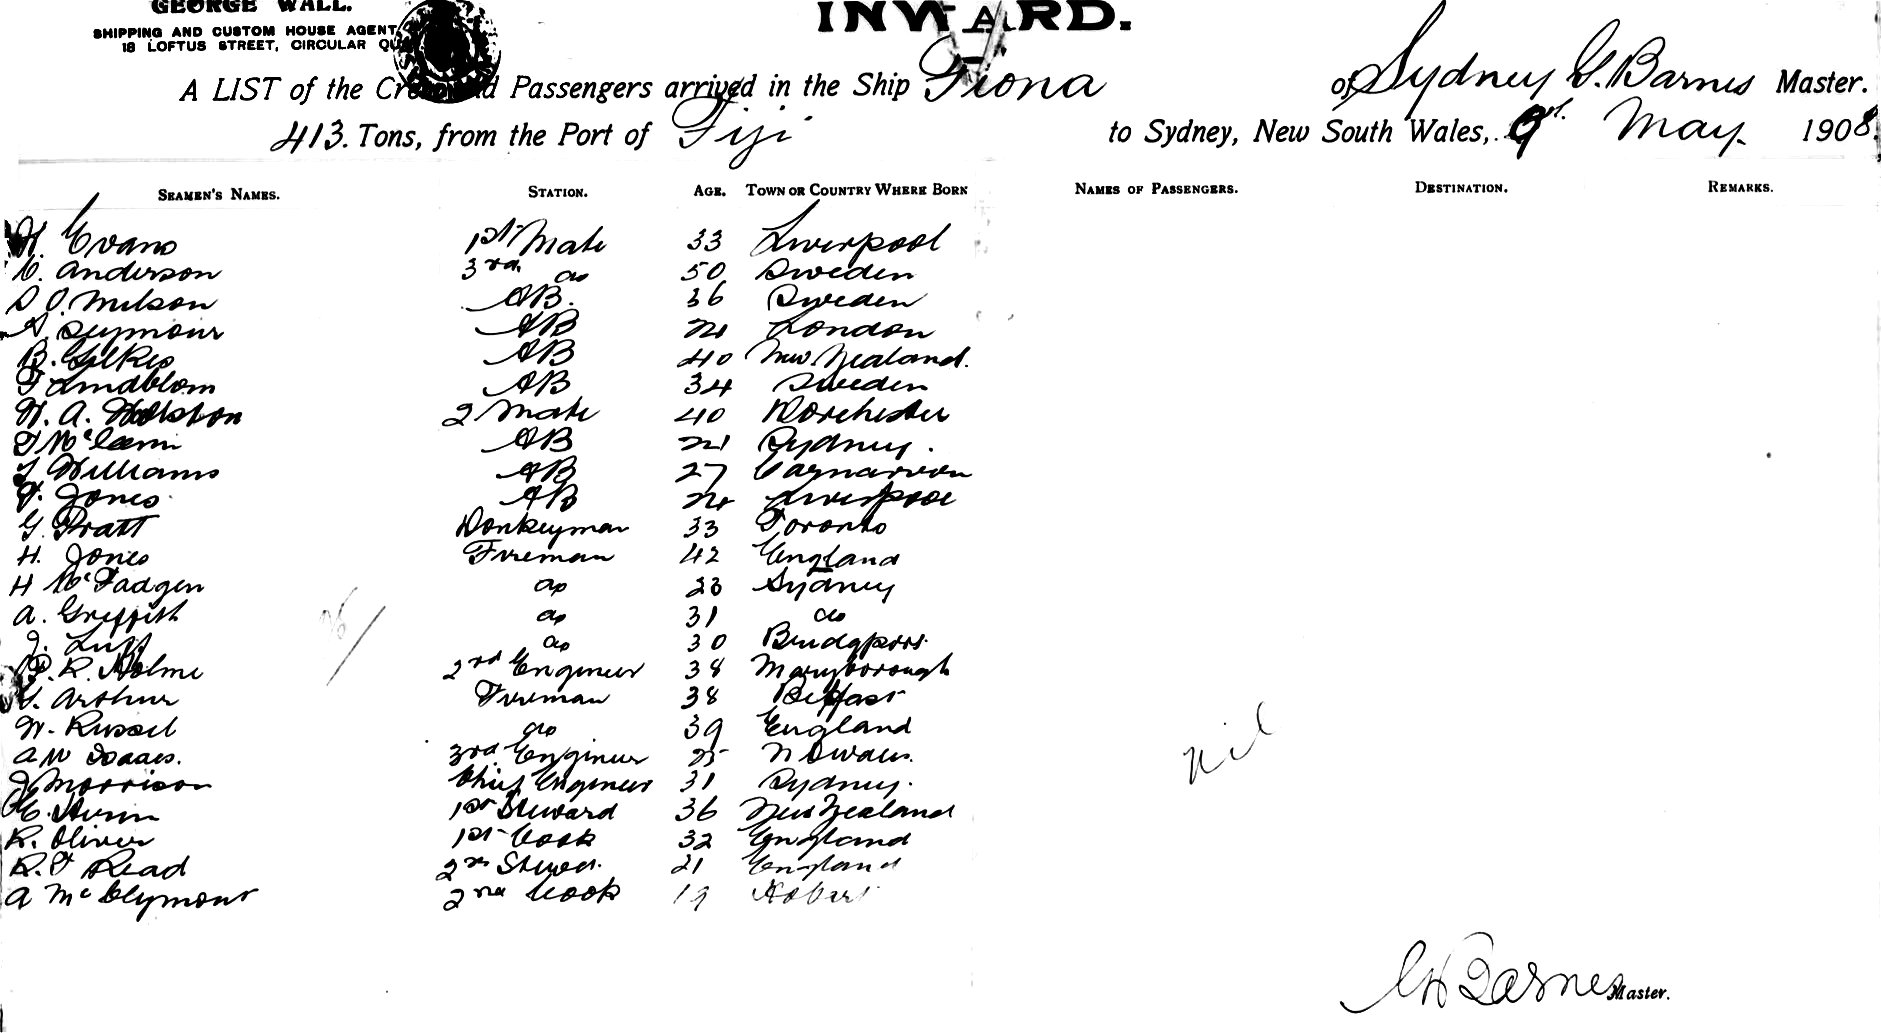 GEORGE WALL.
SHIPPING AND CUSTOM HOUSE AGENT
18 LOFTUS STREET, CIRCULAR QU
INWARD.
A LIST of the Crew and Passengers arrived in the Ship Fiona of Sydney G. Barnes Master.
413. Tons, from the Port of Fiji to Sydney, New South Wales, 9th May 1908.
SEAMEN'S NAMES. STATION. AGE. TOWN OR COUNTRY WHERE BORN NAMES OF PASSENGERS. DESTINATION. REMARKS.
H. Evans 1st Mate 33 Liverpool
C. Anderson 3rd do 50 Sweden
O. Nilson AB. 36 Sweden
Seymour AB London
B. Gilkes AB 40 New Zealand.
F Lindblom AB 34 Sweden
W. A. 2 Mate 40 Dorchester
AB 21 Sydney.
Williams AB 27 Carnarvon
Jones AB 24 Liverpool
G. Pratt Donkeyman 33 Toronto
H. Jones Fireman 42 England
H McFadgen do 23 Sydney
A. Griffith do 31 do
J. Luff do 30 Bridgport
P. R. Holme 2nd Engineer 38 Maryborough
G. Arthur Fireman 38 Belfast
W. Russel do 39 England
A W Isaacs. 3rd Engineer 25 N S Wales.
J Morrison Chief Engineer 31 Sydney.
1st Steward 36 New Zealand
R. Oliver 1st Cook 32 England
R. F Read 2nd Stewd. 21 England
A McClymont 2nd Cook 19 Hobart
Nil
Barnes Master.